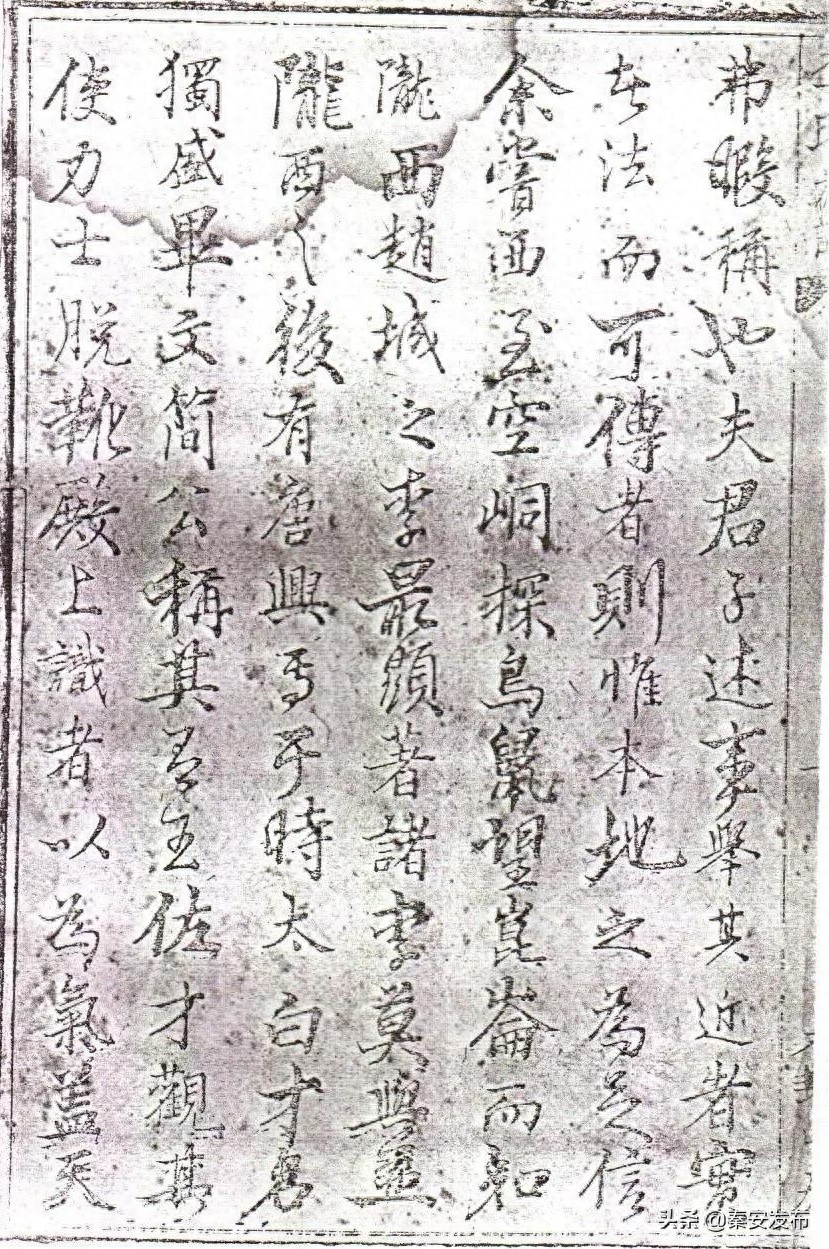 弗暇稱也夫君子述事舉其近者實
者法而可傳者則惟本地之為足信
余嘗西至空峒探鳥鼠望崑崙而知
隴西趙城之李最顯著諸李莫與並
隴西之後有唐興焉于時太白才名
獨盛畢文簡公稱其善王佐才觀其
使力士脫靴殿上識者以為氣蓋天
头条 @秦安发布